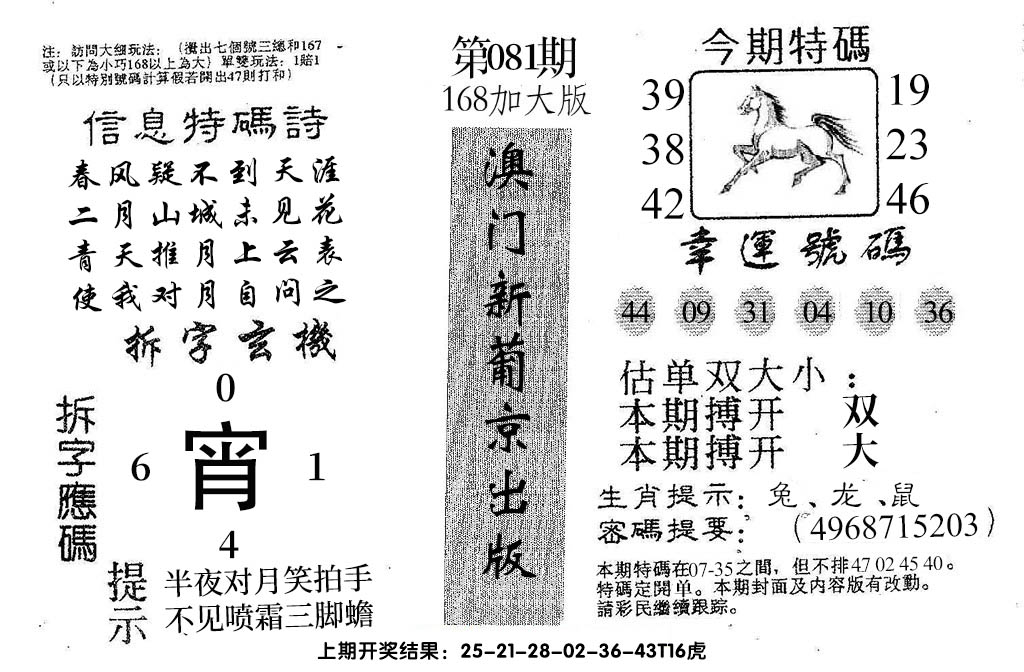 注：訪問大細玩法：（攪出七個號三總和167
或以下為小巧168以上為大）單雙玩法：1賠1
（只以特別號碼計算假若開出47則打和）
信息特碼詩
春风疑不到天涯
二月山城未见花
青天推月上云表
使我对月自问之
拆字玄機
拆字應碼
0
6 宵 1
4
提示
半夜对月笑拍手
不见喷霜三脚蟾
第081期
168加大版
澳门新葡京出版
今期特碼
39 19
38 23
42 46
幸運號碼
44 09 31 04 10 36
估单双大小：
本期搏开 双
本期搏开 大
生肖提示：兔、龙、鼠
密碼提要：（4968715203）
本期特碼在07-35之間，但不排47 02 45 40。
特碼定開单。本期封面及内容版有改動。
請彩民繼續跟踪。
上期开奖结果：25-21-28-02-36-43T16虎